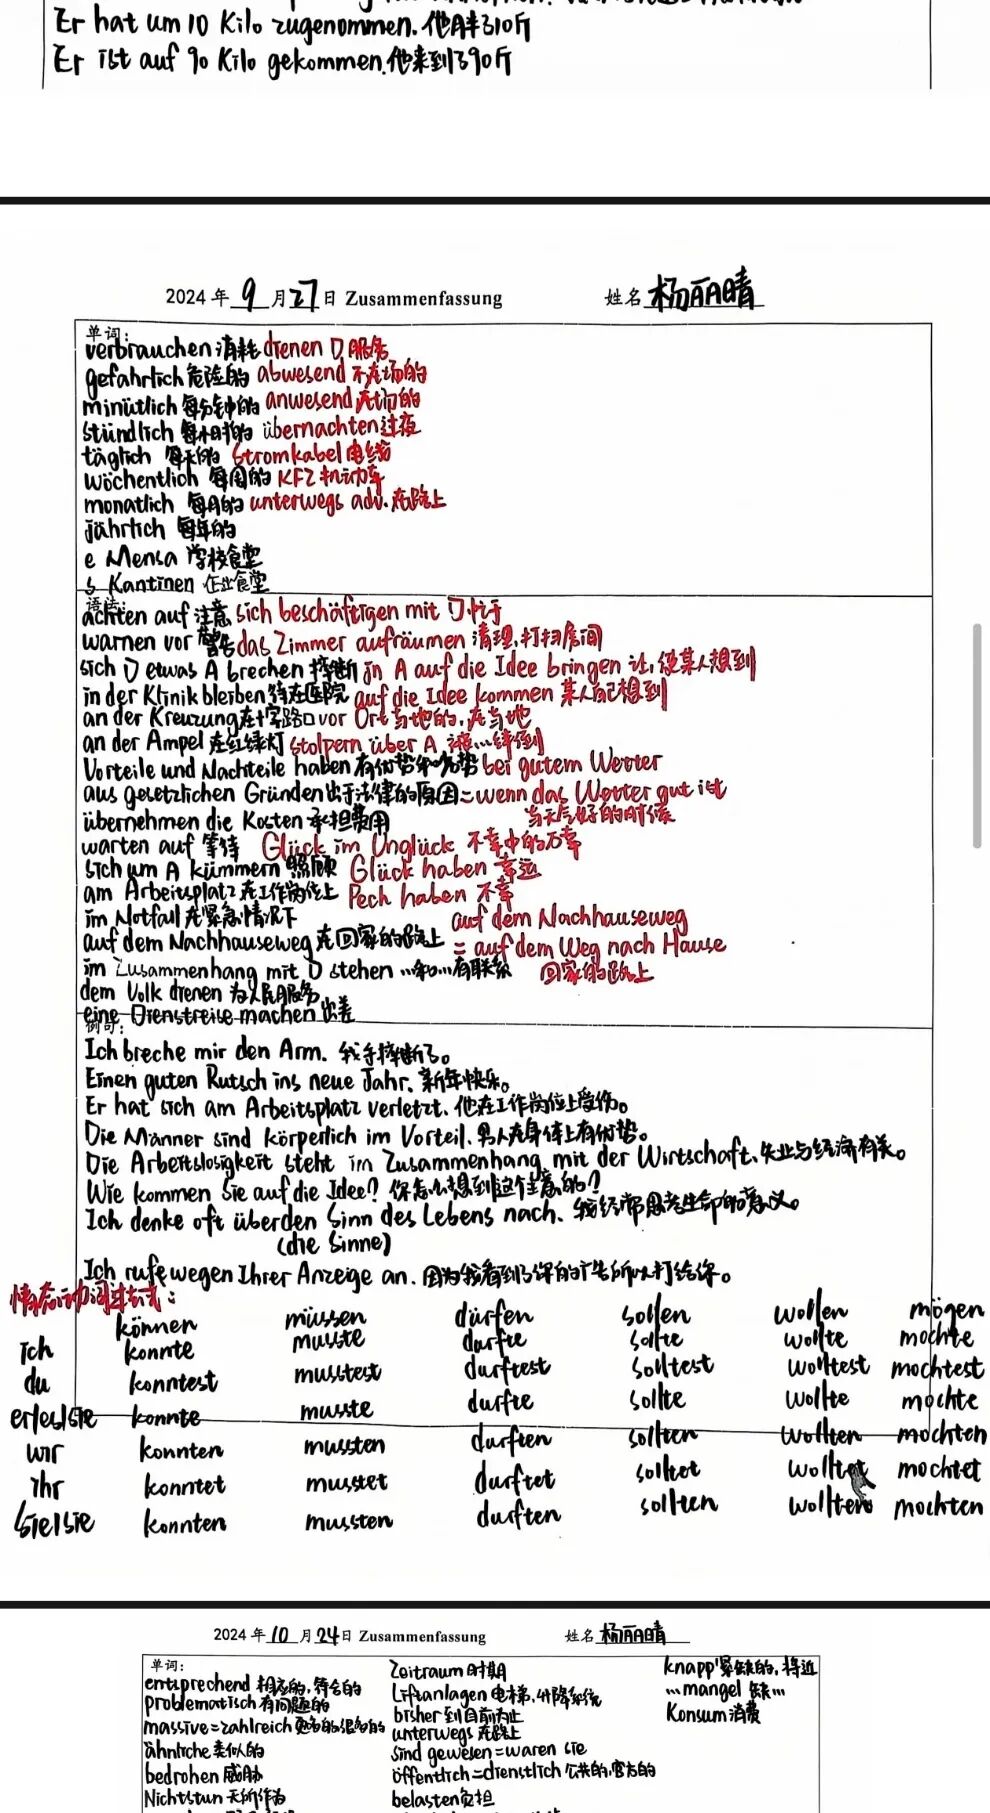 Er hat um 10 Kilo zugenommen. 他胖了10斤
Er ist auf 90 Kilo gekommen. 他来到了90斤
2024 年 9 月 27 日 Zusammenfassung 姓名 杨丽晴
单词:
verbrauchen 消耗 dienen D 服务
gefahrlich 危险的 abwesend 不在场的
minütlich 每分钟的 anwesend 在场的
stündlich 每小时的 übernachten 过夜
täglich 每天的 Stromkabel 电线
wöchentlich 每周的 KFZ 机动车
monatlich 每月的 unterwegs adv. 在路上
jährlich 每年的
e Mensa 学校食堂
s Kantinen 企业食堂
语法:
achten auf 注意 sich beschäftigen mit D 忙于
warnen vor 警告 das Zimmer aufräumen 清理,打扫房间
sich D etwas A brechen 摔断 jn A auf die Idee bringen 让,使某人想到
in der Klinik bleiben 待在医院 auf die Idee kommen 某人自己想到
an der Kreuzung 在十字路口 vor Ort 当地的,在当地
an der Ampel 在红绿灯 stolpern über A 被...绊倒
Vorteile und Nachteile haben 有优势和劣势 bei gutem Wetter
aus gesetzlichen Gründen 出于法律的原因 = wenn das Wetter gut ist
übernehmen die Kosten 承担费用 当天气好的时候
warten auf 等待 Glück im Unglück 不幸中的万幸
sich um A kümmern 照顾 Glück haben 幸运
am Arbeitsplatz 在工作岗位上 Pech haben 不幸
im Notfall 在紧急情况下 auf dem Nachhauseweg
auf dem Nachhauseweg 在回家的路上 = auf dem Weg nach Hause
im Zusammenhang mit D stehen ...和...有联系 回家的路上
dem Volk dienen 为人民服务
eine Dienstreise machen 出差
例句:
Ich breche mir den Arm. 我手摔断了。
Einen guten Rutsch ins neue Jahr. 新年快乐。
Er hat sich am Arbeitsplatz verletzt. 他在工作岗位上受伤。
Die Männer sind körperlich im Vorteil. 男人在身体上有优势。
Die Arbeitslosigkeit steht im Zusammenhang mit der Wirtschaft. 失业与经济有关。
Wie kommen Sie auf die Idee? 你怎么想到这个主意的?
Ich denke oft über den Sinn des Lebens nach. 我经常思考生命的意义。
(die Sinne)
Ich rufe wegen Ihrer Anzeige an. 因为我看到了你的广告所以打给你。
情态动词过去式:
können müssen dürfen sollen wollen mögen
ich konnte musste durfte sollte wollte mochte
du konntest musstest durftest solltest wolltest mochtest
er/es/sie konnte musste durfte sollte wollte mochte
wir konnten mussten durften sollten wollten mochten
ihr konntet musstet durftet solltet wolltet mochtet
Sie/sie konnten mussten durften sollten wollten mochten
2024 年 10 月 24 日 Zusammenfassung 姓名 杨丽晴
单词:
entsprechend 相应的,符合的 Zeitraum 时期 knapp 紧缺的,将近
problematisch 有问题的 Liftanlagen 电梯,升降系统 ...mangel 缺...
massive=zahlreich bisher 到目前为止 Konsum 消费
ähnliche 类似的 unterwegs 在路上
bedrohen 威胁 sind gewesen = waren sie
Nichtstun 无所作为 öffentlich=dienstlich 公共的,官方的
belasten 负担